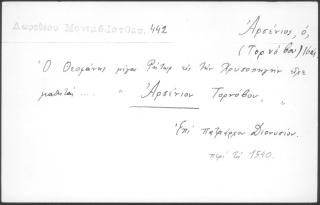 Δωροθέου Μονεμβασίας. 442
Ἀρσένιος, ὁ,
(Τορνόβου)
Ὁ Θεοφάνης μέγας Ῥήτωρ εἰς τὴν Χρυσοπηγὴν εἶχε
μαθητὰς .... " Ἀρσένιον Τορνόβου, "
Ἐπὶ πατριάρχου Διονυσίου.
περὶ τὸ 1540.